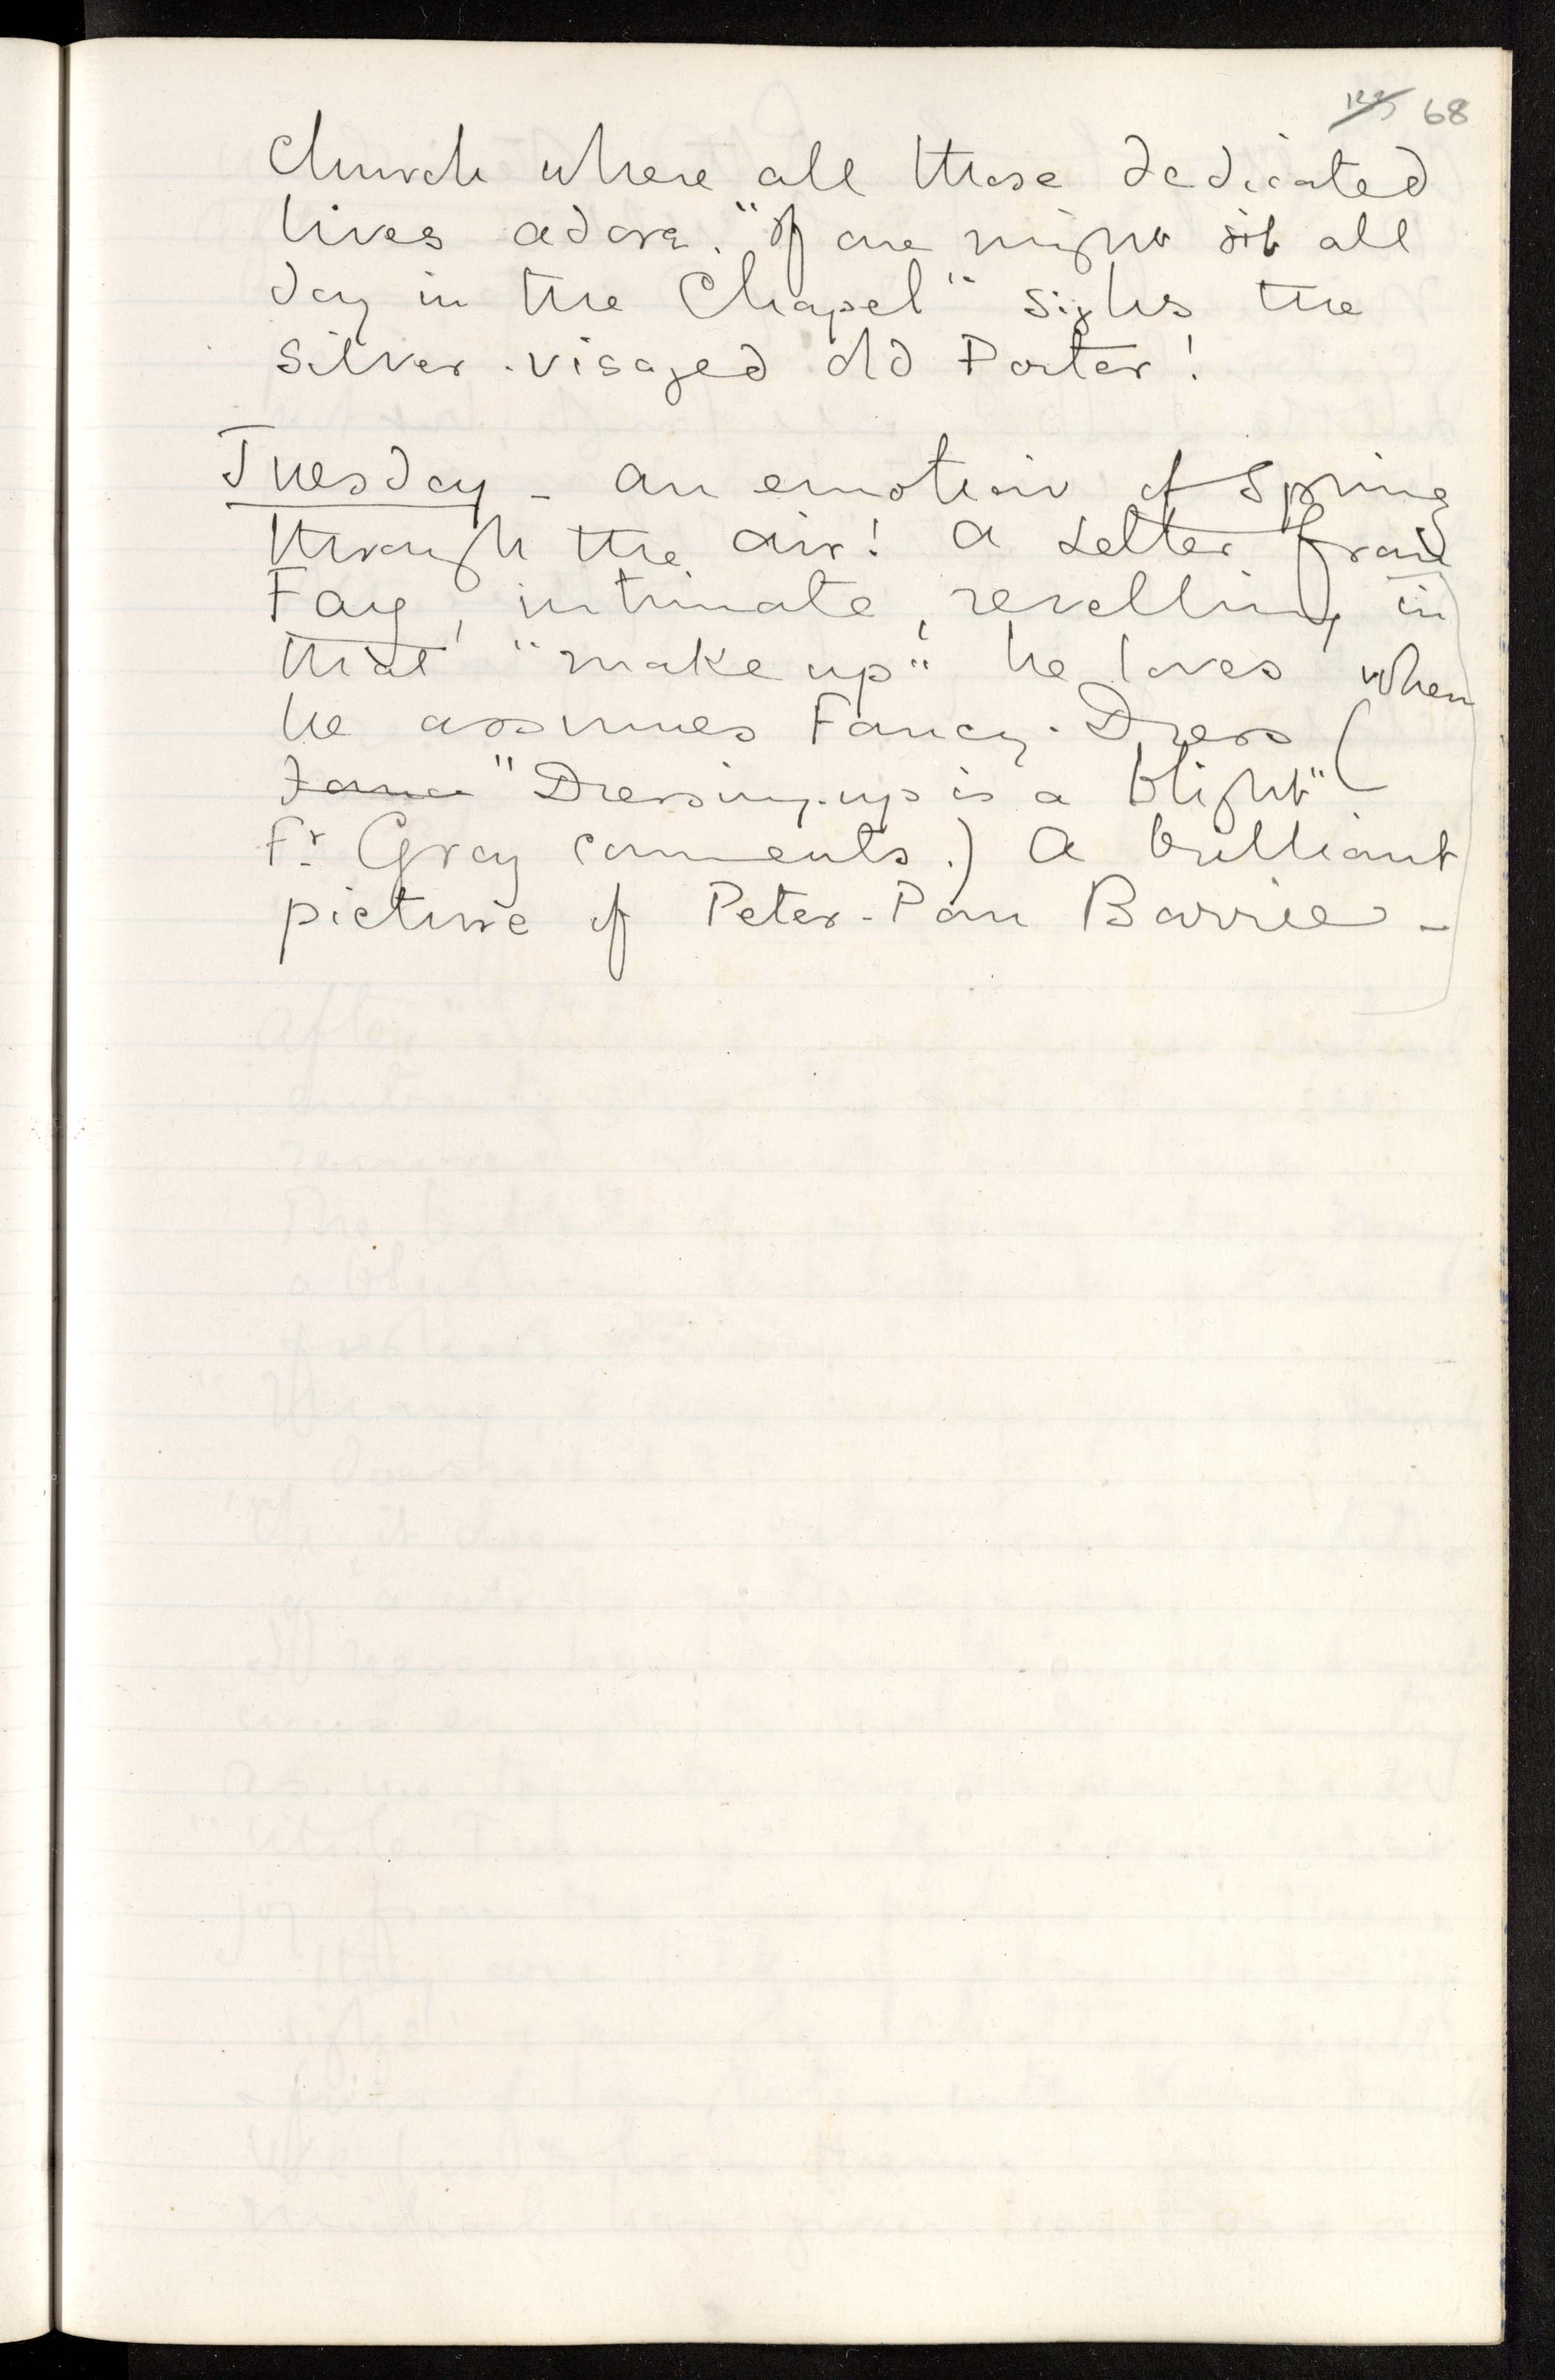 68
Church where all those dedicated
lives adore. "If one might sit all
day in the Chapel" sighs the
silver-visaged old Porter!
Tuesday - an emotion of Spring
through the air! A letter from
Fay, intimate, revelling in
that "make up" he loves when
he assumes Fancy-Dress (
"Dressing-up is a blight"
Fr Gray comments.) A brilliant
picture of Peter-Pan Barrie -